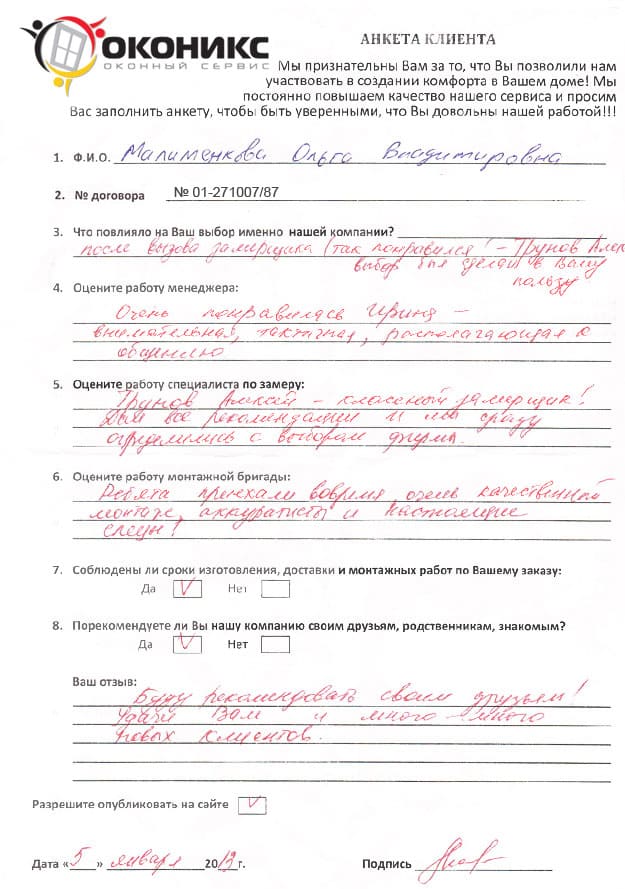 ОКОНИКС
ОКОННЫЙ СЕРВИС
АНКЕТА КЛИЕНТА
Мы признательны Вам за то, что Вы позволили нам
участвовать в создании комфорта в Вашем доме! Мы
постоянно повышаем качество нашего сервиса и просим
Вас заполнить анкету, чтобы быть уверенными, что Вы довольны нашей работой!!!
1. Ф.И.О. Малименкова Ольга Владимировна
2. № договора № 01-271007/87
3. Что повлияло на Ваш выбор именно нашей компании?
после вызова замерщика (так понравился! - Трунов Алек
выбор был сделан в Вашу
пользу
4. Оцените работу менеджера:
Очень понравилась Ирина -
внимательная, тактичная, располагающая к
общению
5. Оцените работу специалиста по замеру:
Трунов Алексей - классный замерщик!
Дал все рекомендации и мы сразу
определились с выбором фирмы.
6. Оцените работу монтажной бригады:
Ребята приехали вовремя, очень качественный
монтаж, аккуратисты и настоящие
спецы!
7. Соблюдены ли сроки изготовления, доставки и монтажных работ по Вашему заказу:
Да V Нет
8. Порекомендуете ли Вы нашу компанию своим друзьям, родственникам, знакомым?
Да V Нет
Ваш отзыв:
Буду рекомендовать своим друзьям!
Удачи Вам и много-много
новых клиентов.
Разрешите опубликовать на сайте V
Дата «5» января 2013г. Подпись